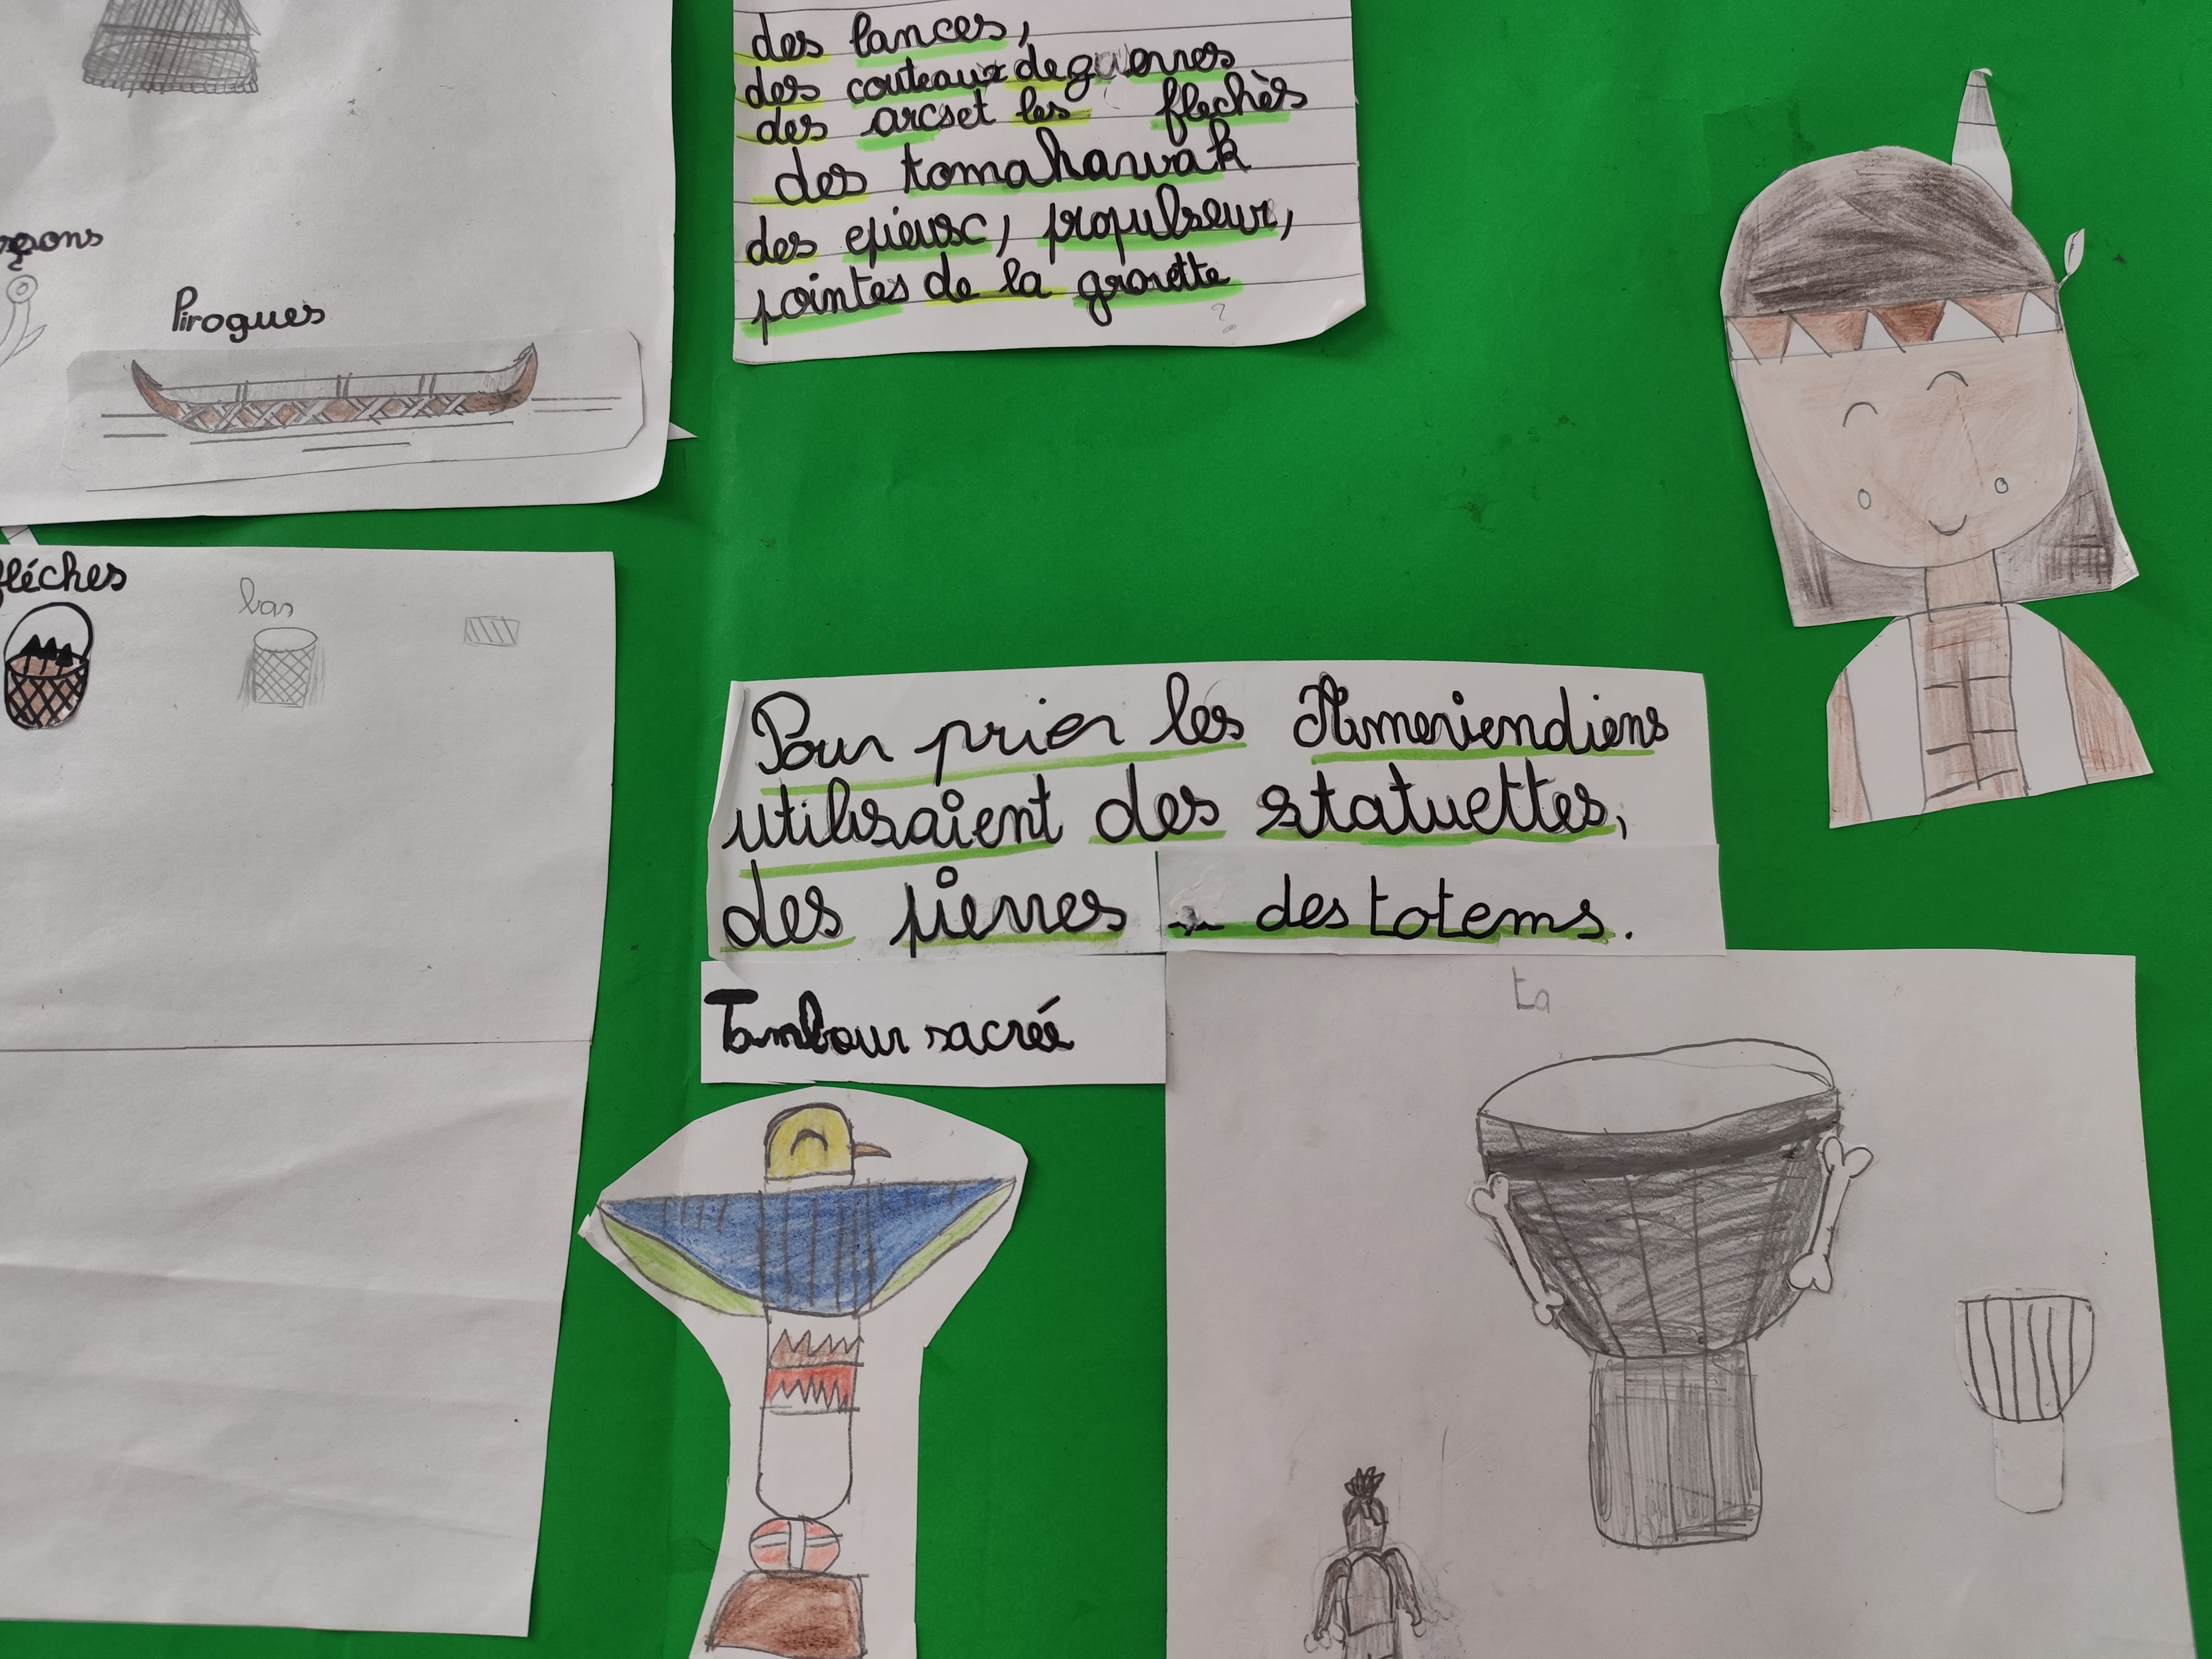 des lances,
des couteaux de guerres
des arcs et les flechès
des tomahawak
des epieux, propulseur,
pointes de la gravette
?
Pirogues
fléches
bas
Pour prier les Ameriendiens
utilisaient des statuettes,
des pierres des totems.
Tambour sacrée
ta